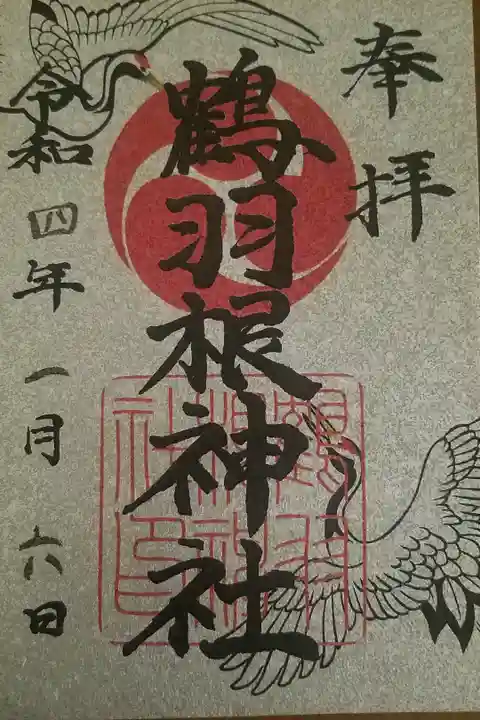 奉拝
鶴羽根神社
令和四年一月六日